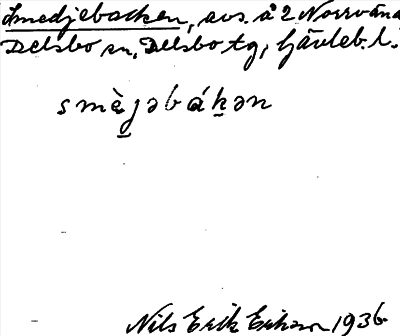 Smedjebacken, avs. å 2 Norrväna
Delsbo sn, Delsbo tg, Gävleb. l.
smèjəbáḵən
Nils Erik Erikson 1936.